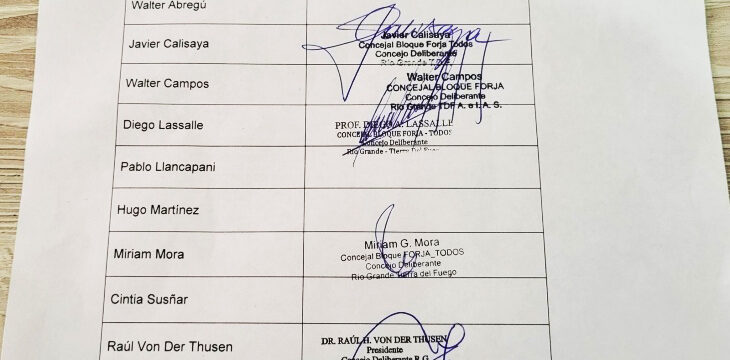 Walter Abregú
Javier Calisaya
Javier Calisaya
Concejal Bloque Forja Todos
Concejo Deliberante
Río Grande TDF.
Walter Campos
Walter Campos
CONCEJAL BLOQUE FORJA
Concejo Deliberante
Río Grande TDF A. e I. A. S.
Diego Lassalle
PROF. DIEGO A. LASSALLE
CONCEJAL BLOQUE FORJA - TODOS
Concejo Deliberante
Río Grande - Tierra Del Fuego
Pablo Llancapani
Hugo Martínez
Miriam Mora
Miriam G. Mora
Concejal Bloque FORJA_TODOS
Concejo Deliberante
Río Grande-Tierra del Fuego
Cintia Susñar
Raúl Von Der Thusen
DR. RAÚL H. VON DER THUSEN
Presidente
Concejo Deliberante R.G.